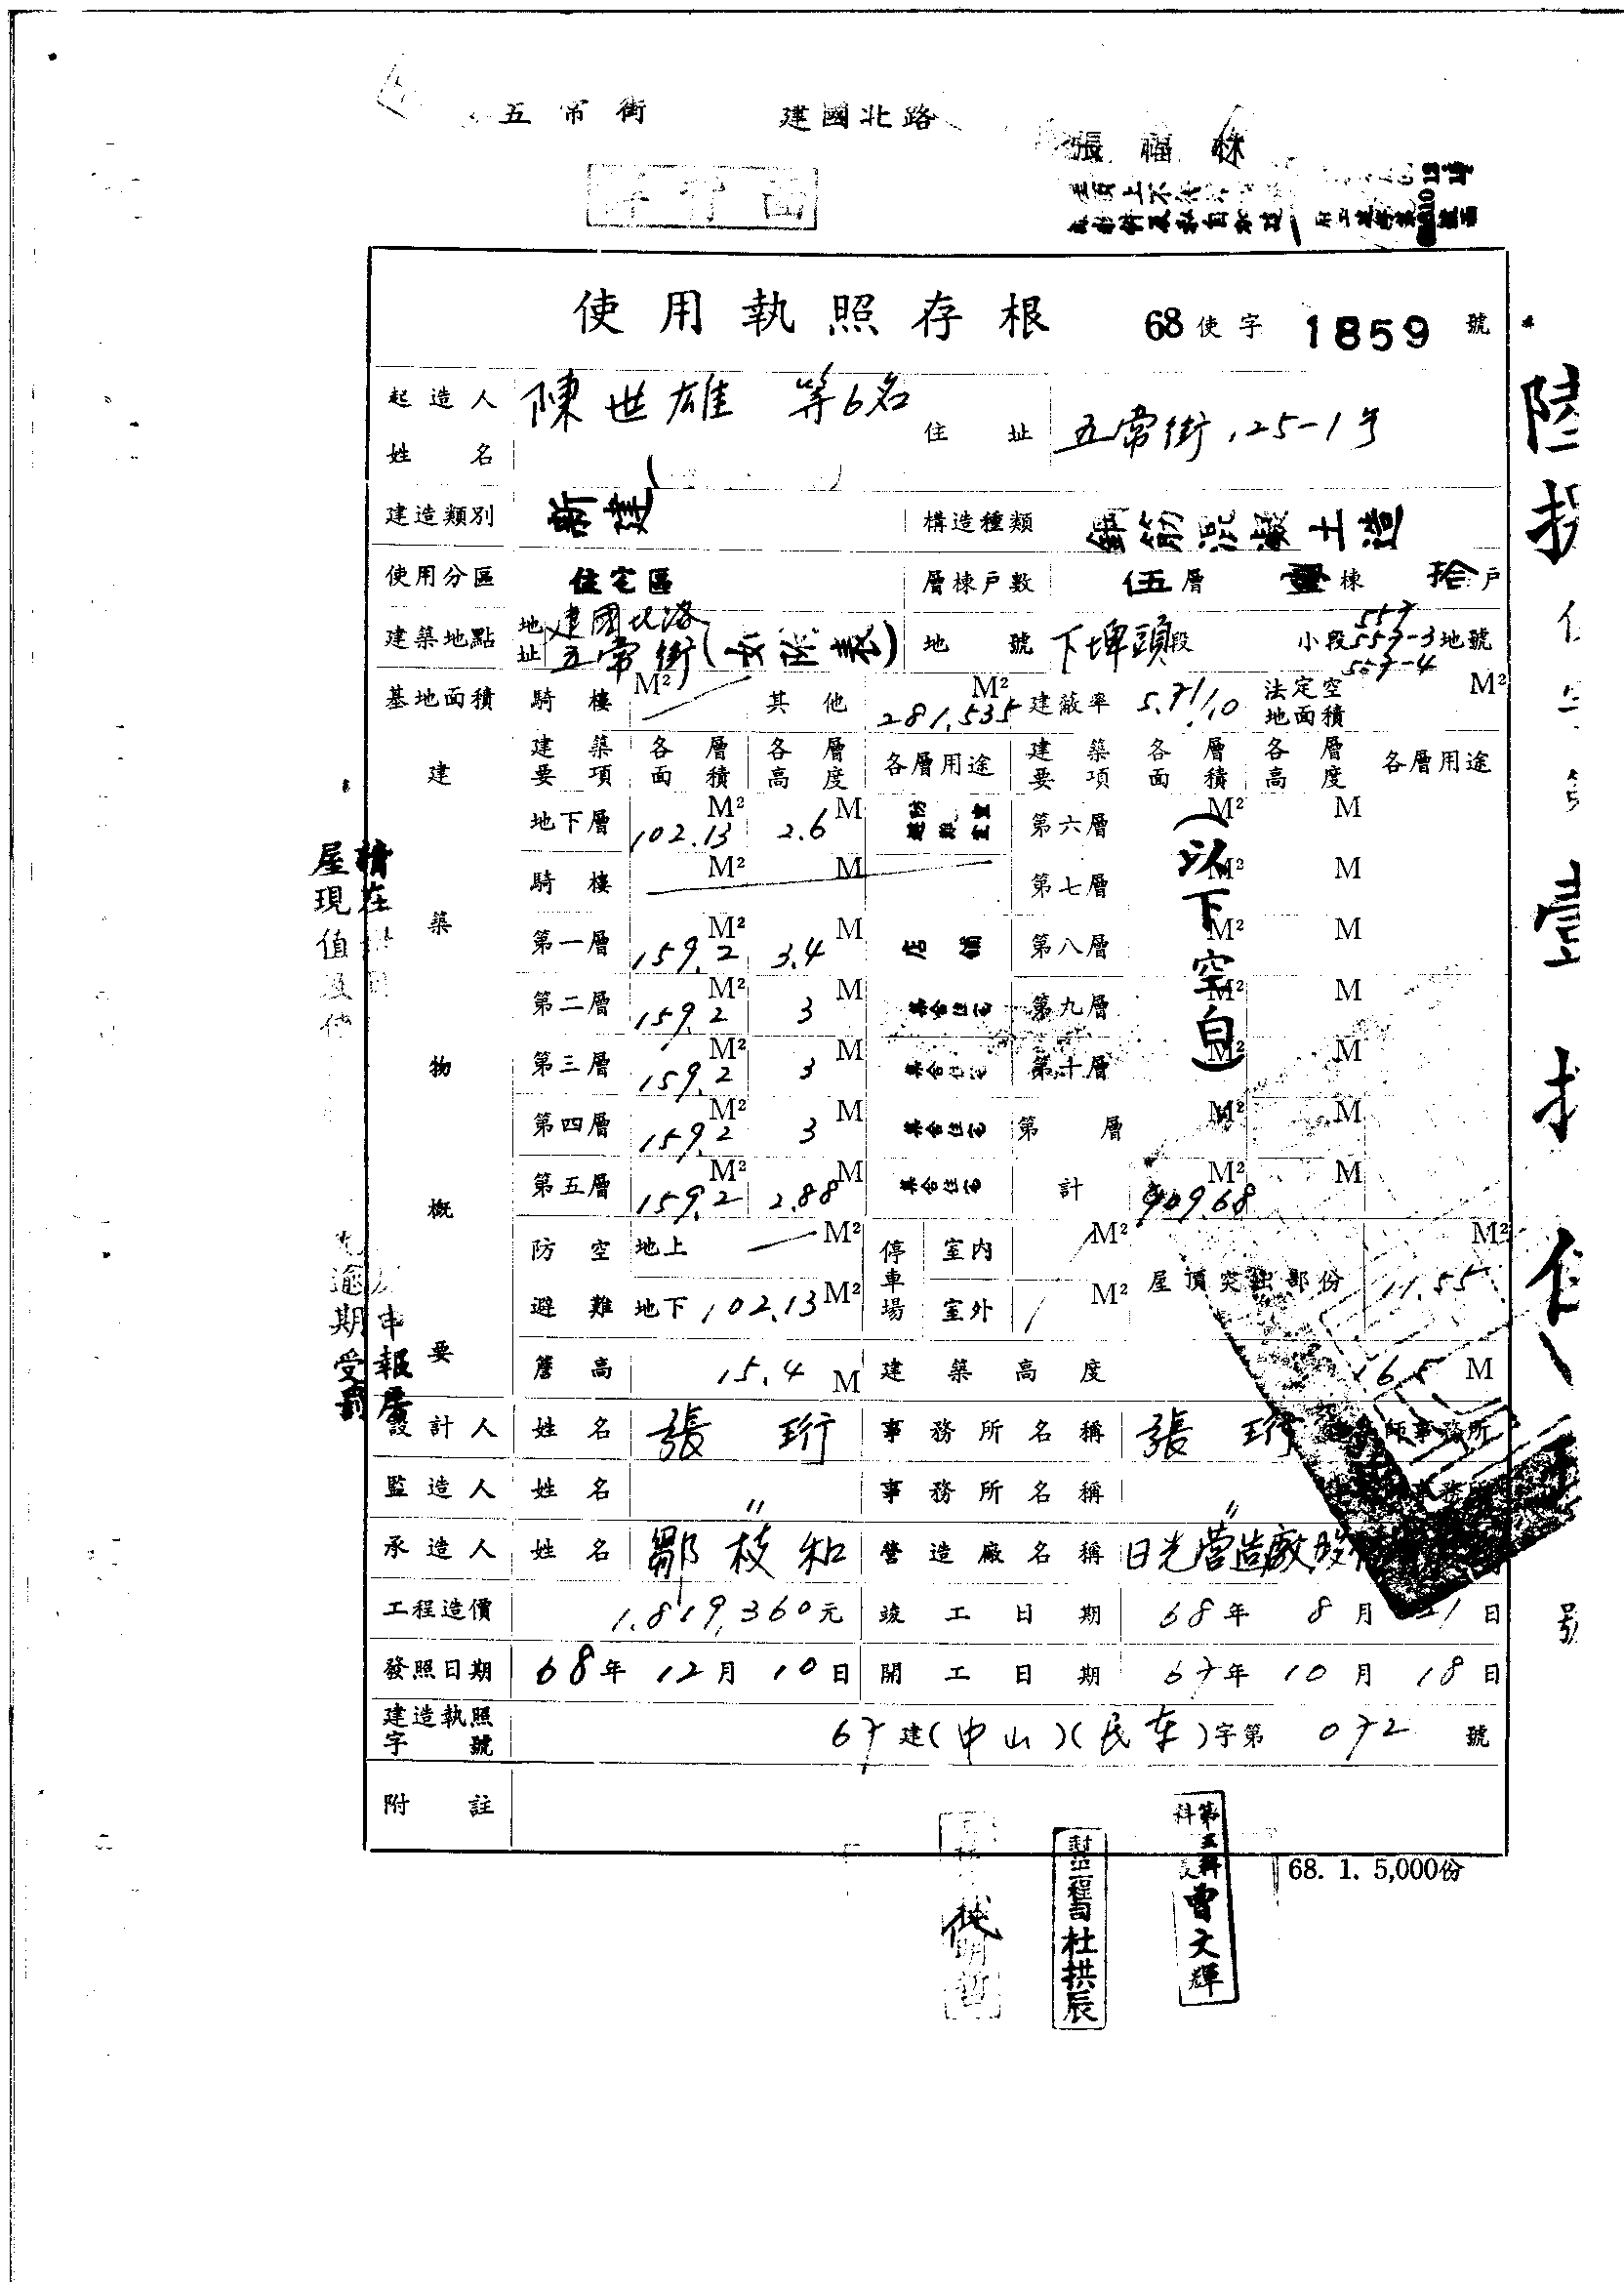 五常街 建國北路
張福
使用執照存根 68使字 1859 號
起造人姓名 陳世雄 等6名 住址 五常街125-1号
建造類別 新建 構造種類 鋼筋混凝土造
使用分區 住宅區 層棟戶數 伍層 壹棟 拾戶
建築地點 地址 建國北路 五常街(如附表) 地號 下埤頭段 小段 557 557-3 557-4 地號
基地面積 騎樓 M² 其他 281.535 M² 建蔽率 5.71/10 法定空地面積 M²
建築物概要
建築要項 各層面積 各層高度 各層用途 建築要項 各層面積 各層高度 各層用途
地下層 102.13 M² 2.6 M 第六層 M² M
騎樓 M² M 第七層 M² M
第一層 159.2 M² 3.4 M 店舖 第八層 M² M
第二層 159.2 M² 3 M 集合住宅 第九層 M² M
第三層 159.2 M² 3 M 集合住宅 第十層 M² M
第四層 159.2 M² 3 M 集合住宅 第 層 M² M
第五層 159.2 M² 2.88 M 集合住宅 計 909.68 M² M
(以下空白)
防空避難 地上 M² 停車場 室內 M² 屋頂突出部份 11.55 M²
地下 102.13 M² 室外 M²
簷高 15.4 M 建築高度 16.5 M
設計人 姓名 張珩 事務所名稱 張珩 師事務所
監造人 姓名 〃 事務所名稱 〃
承造人 姓名 鄒枝和 營造廠名稱 日光營造廠股
工程造價 1,819,360元 竣工日期 68年 8月 21日
發照日期 68年 12月 10日 開工日期 67年 10月 18日
建造執照字號 67建(中山)(民東)字第 072 號
附註
68. 1. 5,000份
代
杜拱辰
第三科科長 曾文輝
逾期受罰
申報
屋現值